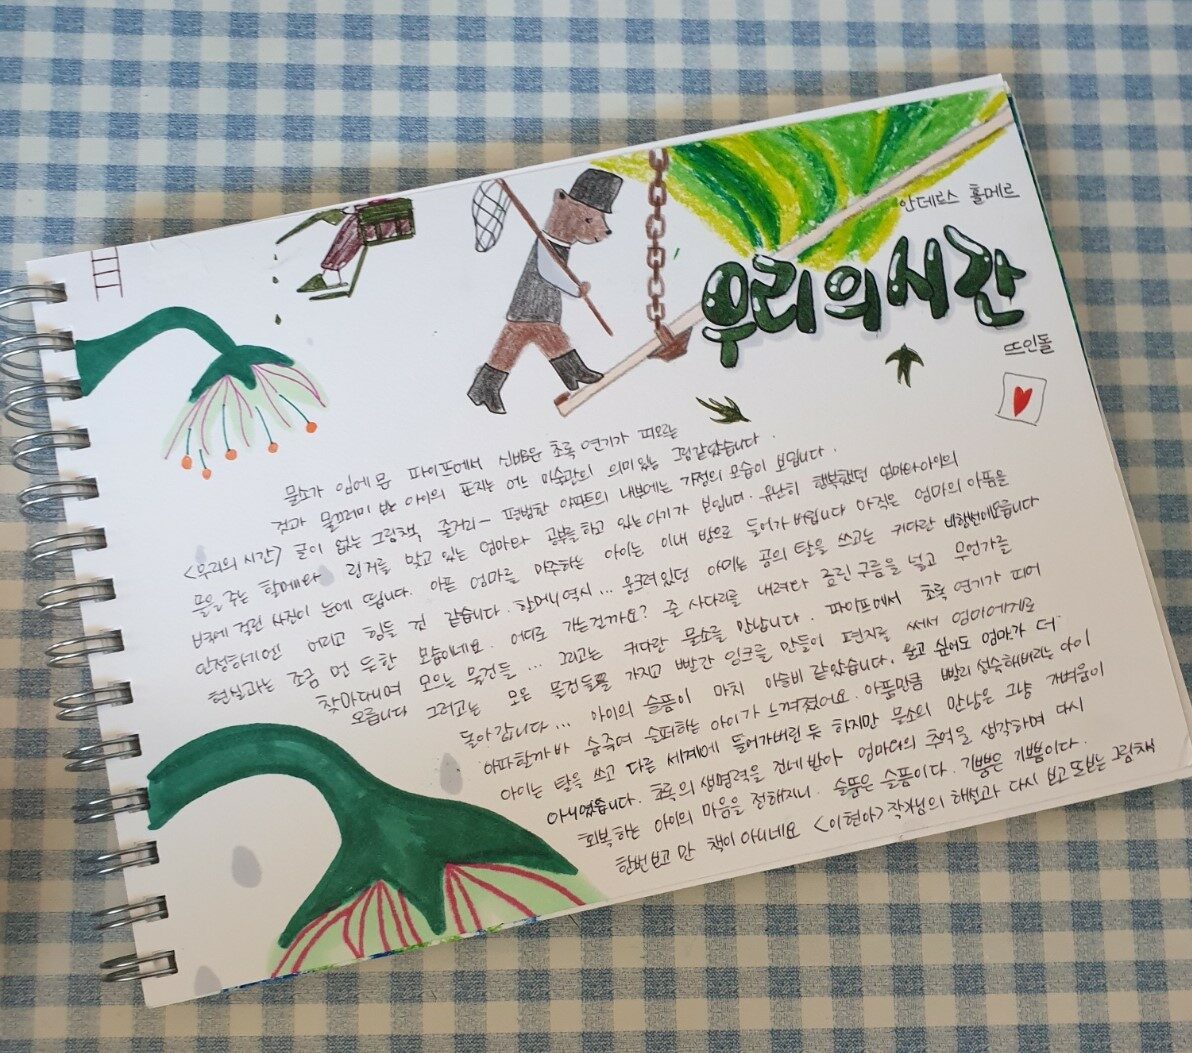 안데르스 홀메르
우리의 시간
뜨인돌
물소가 입에 문 파이프에서 신비로운 초록 연기가 피오르는
것과 물끄러미 반 아이의 표지는 어느 미술관의 의미있는 그림같았습니다.
<우리의 시간> 글이 없는 그림책 줄거리- 평범한 아파트의 내부에는 가정의 모습이 보입니다.
물을 주는 할머니와 링거를 맞고 있는 엄마와 공부를 하고 있는 아이가 보입니다. 유난히 행복했던 엄마와 아이의
벽에 걸린 사진이 눈에 띕니다. 아픈 엄마를 마주하는 아이는 이내 방으로 들어가 버립니다 아직은 엄마의 아픔을
인정하기엔 어리고 힘들 것 같습니다. 할머니 역시... 웅크려있던 아이는 곰의 탈을 쓰고는 커다란
현실과는 조금 먼 듯한 모습이네요. 어디로 가는걸까요? 줄 사다리를 내려타 흐린 구름을 넣고 무언가를
찾아다니며 모으는 물건들... 그리고는 커다란 물소를 만납니다. 파이프에서 초록 연기가 피어
오릅니다 그리고는 모은 물건들을 가지고 빨간 잉크를 만들어 편지를 써서 엄마에게로
돌아갑니다... 아이의 슬픔이 마치 이슬비 같았습니다. 울고 싶어도 엄마가 더
아파할까봐 숨죽여 슬퍼하는 아이가 느껴졌어요. 아픔만큼 빨리 성숙해버리는 아이
아이는 탈을 쓰고 다른 세계에 들어가버린 듯 하지만 물소의 만남은 그냥 가벼움이
아니었습니다. 초록의 생명력을 건네받아 엄마와의 추억을 생각하며 다시
회복하는 아이의 마음을 전해지니. 슬픔은 슬픔이다. 기쁨은 기쁨이다.
한번 보고 만 책이 아니네요 <이현아> 작가님의 해설과 다시 보고 또보는 그림책